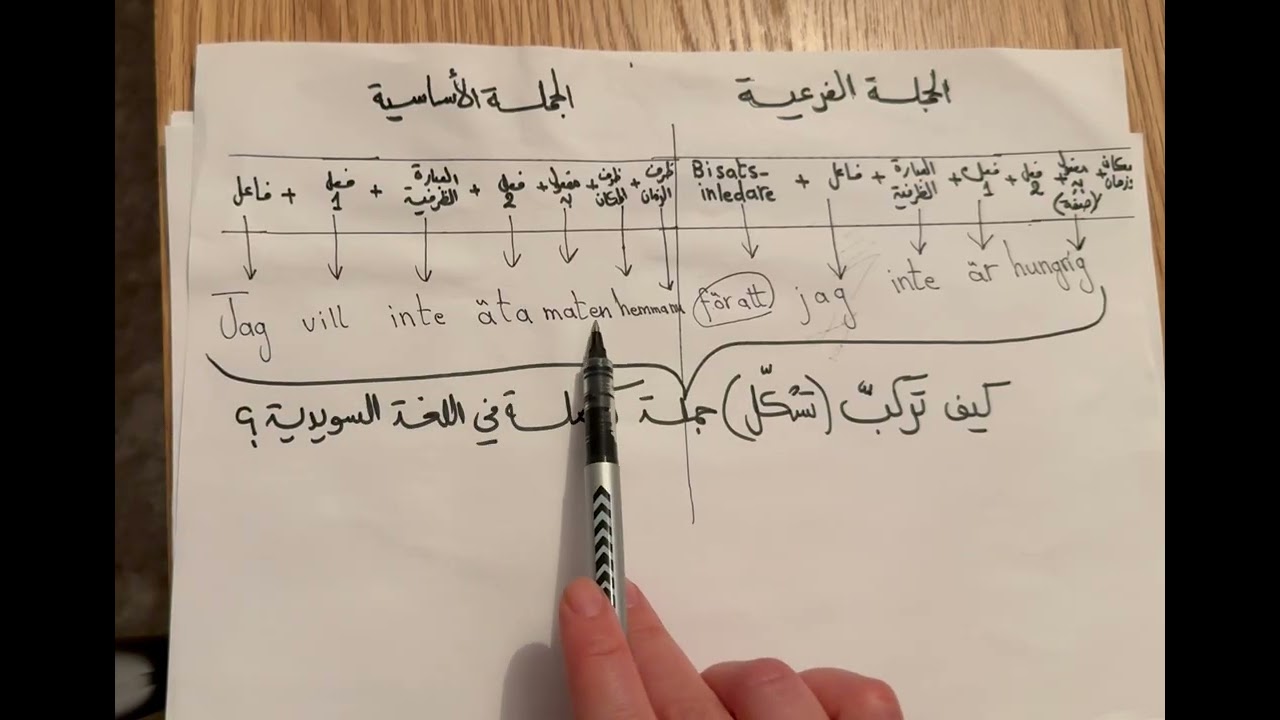 الجملة الأساسية
الجملة الفرعية
فاعل + فعل 1 + العبارة الظرفية + فعل 2 + مفعول به + ظرف المكان + ظرف الزمان
Bisats-inledare + فاعل + العبارة الظرفية + فعل 1 + فعل 2 + مفعول به (صفة) + مكان زمان
Jag vill inte äta maten hemmana
för att jag inte är hungrig
كيف تركبّ (تشكّل) جملة كاملة في اللغة السويدية؟